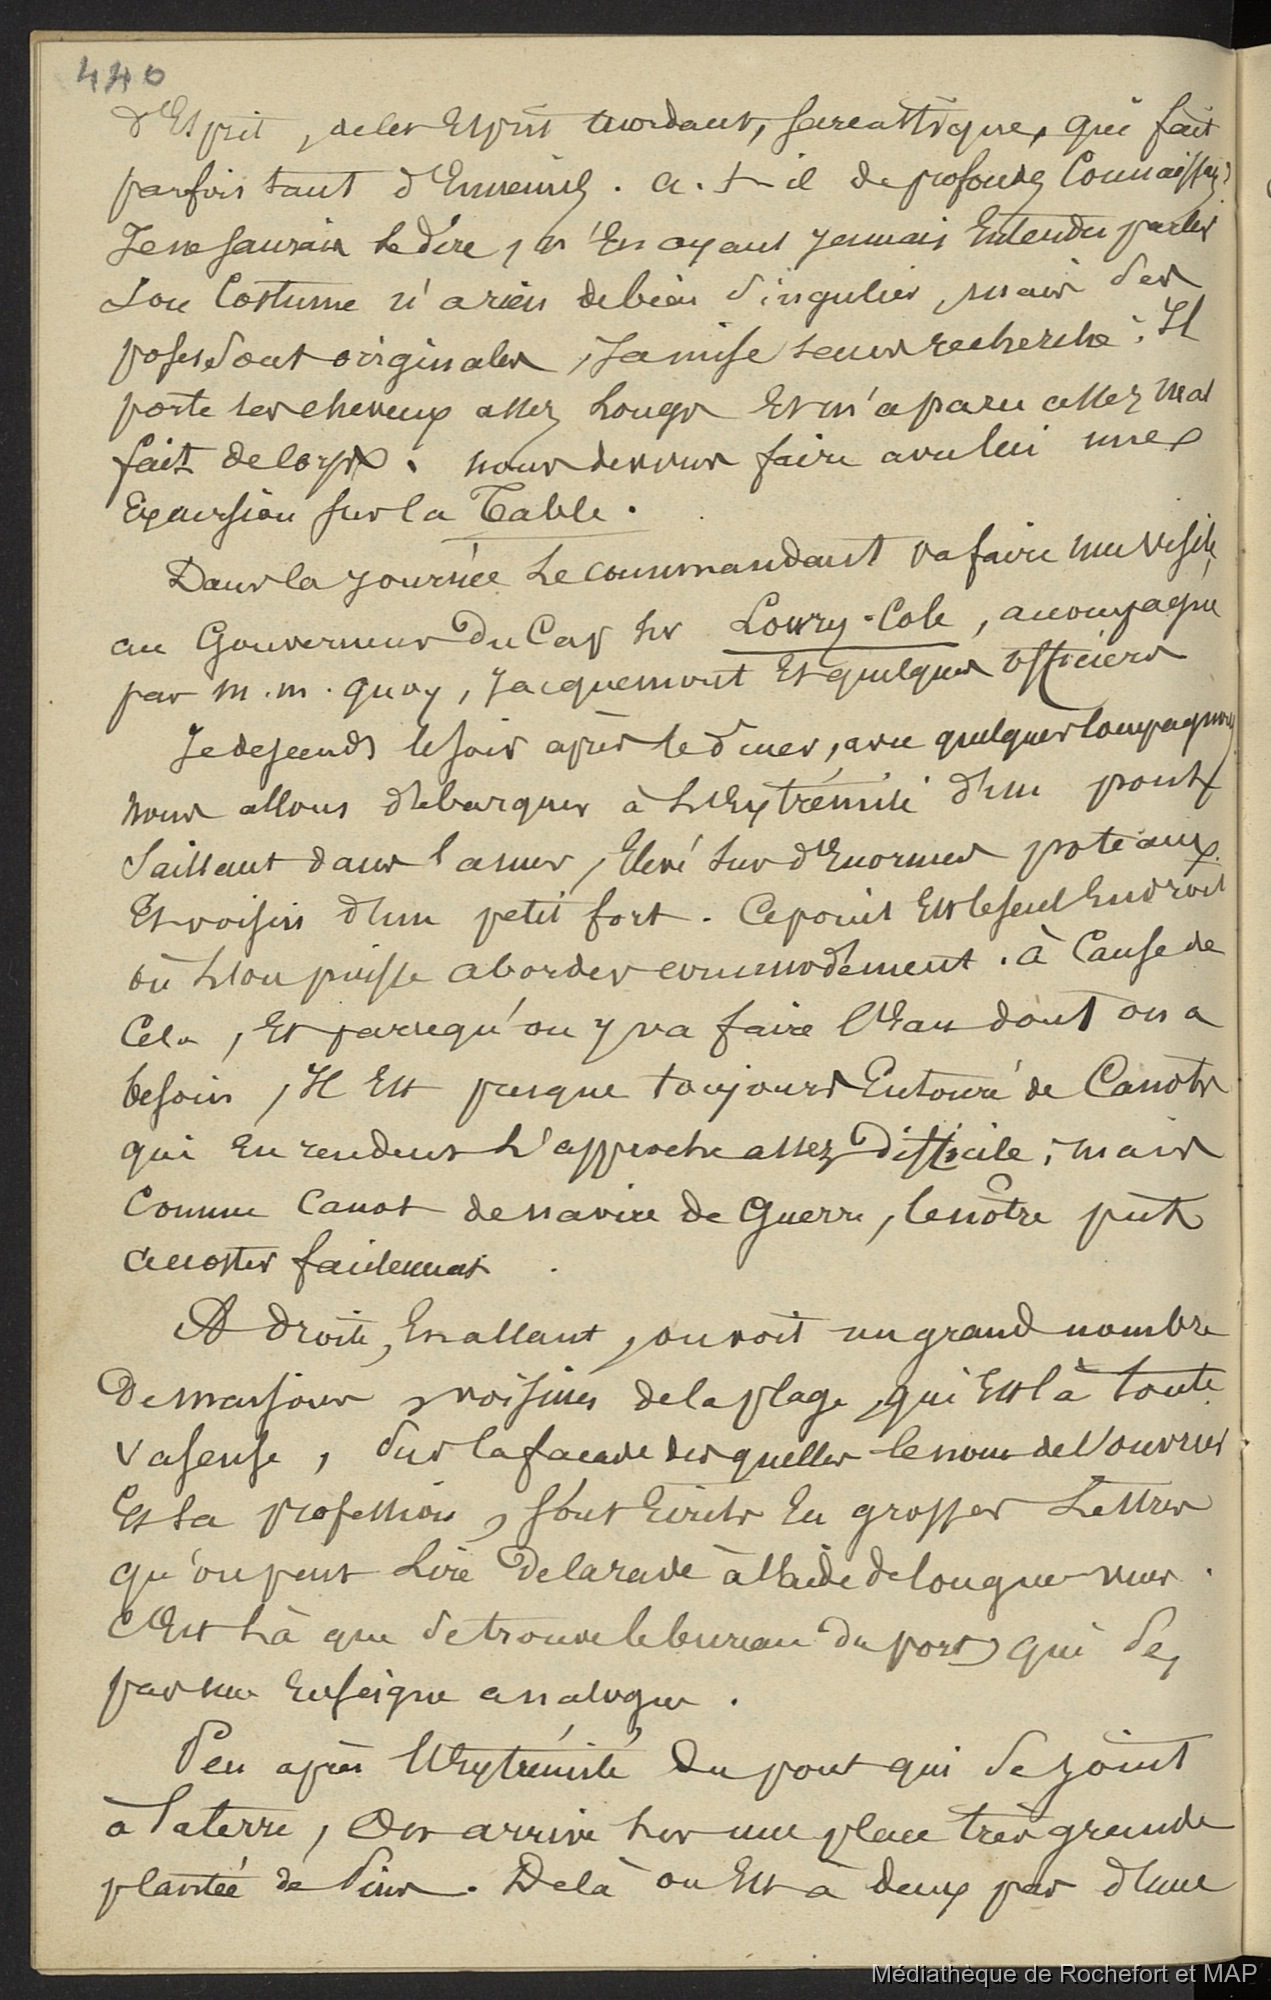 440
d'Esprit, de cet Esprit mordant, sarcastique, qui fait
parfois tant d'Ennemis. a-t-il de profondes Connaissances
Je ne saurais le dire, n'En ayant jamais Entendu parler
Son Costume n'a rien de bien singulier, mais ses
poses sont originales, sa mise sans recherche. Il
porte les cheveux assez longs Et m'a paru assez mal
fait de corps. nous devons faire avec lui une
Excursion sur la Table.
Dans la journée le commandant va faire une visite
au Gouverneur Du Cap Sir Lowry-Cole, accompagné
par m.m. quoy, Jacquemont Et quelques officiers
Je descends le soir après le diner, avec quelques compagnons
nous allons débarquer à l'Extrémité d'un pont
Saillant dans la mer, Elevé sur d'Enormes poteaux
Et voisin d'un petit fort. Ce point Est le seul Endroit
où l'on puisse aborder commodément. à Cause de
Cela, Et parcequ'on y va faire l'Eau dont on a
besoin, Il Est presque toujours Entouré de Canots
qui En rendent l'approche assez Difficile; mais
Comme Canot de navire de Guerre, le nôtre put
accoster facilement.
A droite, En allant, on voit un grand nombre
De maisons, voisines de la plage, qui Est là toute
vaseuse, sur la facade desquelles le nom de l'ouvrier
Et sa profession, sont Ecrits En grosses Lettres
qu'on peut Lire De la rade à l'aide de longue-vues.
C'Est Là que se trouve le bureau Du port qui se,
par une Enseigne analogue.
Peu après l'Extrémité Du pont qui se joint
à la terre, On arrive sur une place très grande
plantée de Pins. De là on Est à deux pas d'une
Médiathèque de Rochefort et MAP